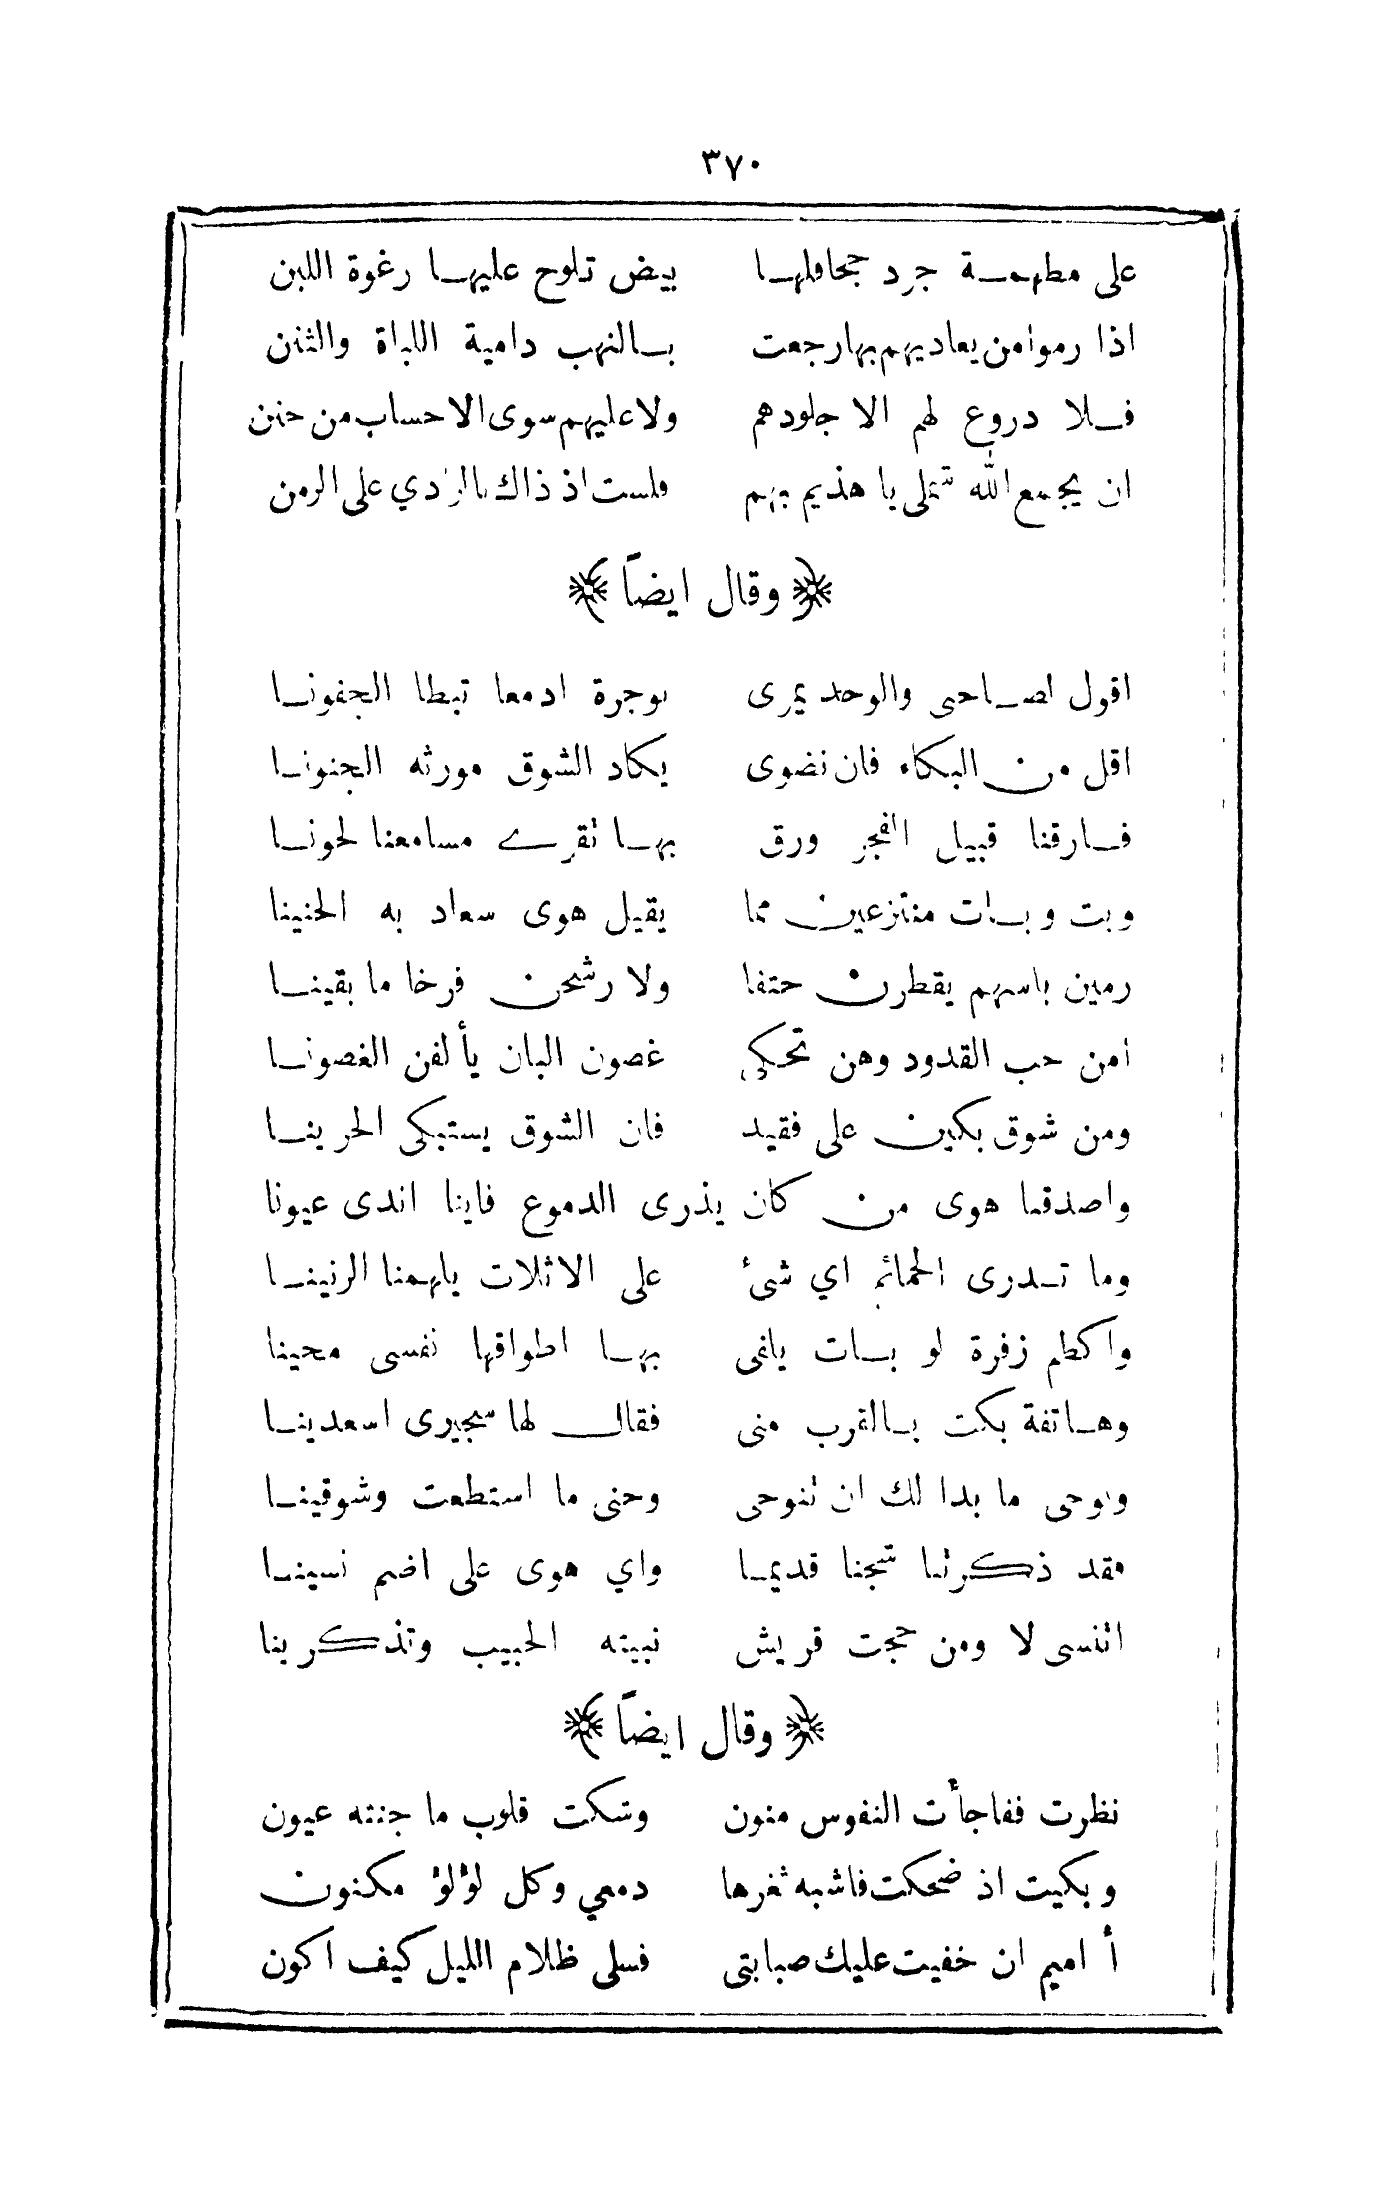 ٣٧٠
على مطهمة جرد جحافلها بيض تلوح عليها رغوة اللبن
اذا رموا من يعاديهم بها رجعت بالنهب دامية اللباة والثنن
فلا دروع لهم الا جلودهم ولا عليهم سوى الاحساب من حنن
ان يجمع الله شملى يا هذيم بهم فلست اذ ذاك بالزادي على الزمن
﴿ وقال ايضاً ﴾
اقول لصاحبى والوجد يمرى بوجرة ادمعا تبطا الجفونا
اقل من البكاء فان نضوى يكاد الشوق مورثه الجنونا
فارقنا قبيل الفجر ورق بها تقرى مسامعنا لحونا
وبت وبات منتزعين مما يقيل هوى سعاد به الحنينا
رمين باسهم يقطرن حتفا ولا رشحن فرخا ما بقينا
امن حب القدود وهن تحكى غصون البان يألفن الغصونا
ومن شوق بكين على فقيد فان الشوق يستبكى الحزينا
واصدقنا هوى من كان يذرى الدموع فاينا اندى عيونا
وما تدرى الحمائم اي شئ على الاثلات يلهمنا الرنينا
واكظم زفرة لو بات يلقى بها اطواقها نفسى محينا
وهاتفة بكت بالقرب منى فقال لها سجيرى اسعدينا
ونوحى ما بدا لك ان تنوحى وحنى ما استطعت وشوقينا
فقد ذكرتنا شجنا قديما واي هوى على اضم نسينا
اننسى لا ومن حجت قريش نبيته الحبيب وتذكرينا
﴿ وقال ايضاً ﴾
نظرت ففاجأت النفوس منون وشكت قلوب ما جنته عيون
وبكيت اذ ضحكت فاشبه ثغرها دمعي وكل لؤلؤ مكنون
أ اميم ان خفيت عليك صبابتى فسلى ظلام الليل كيف اكون